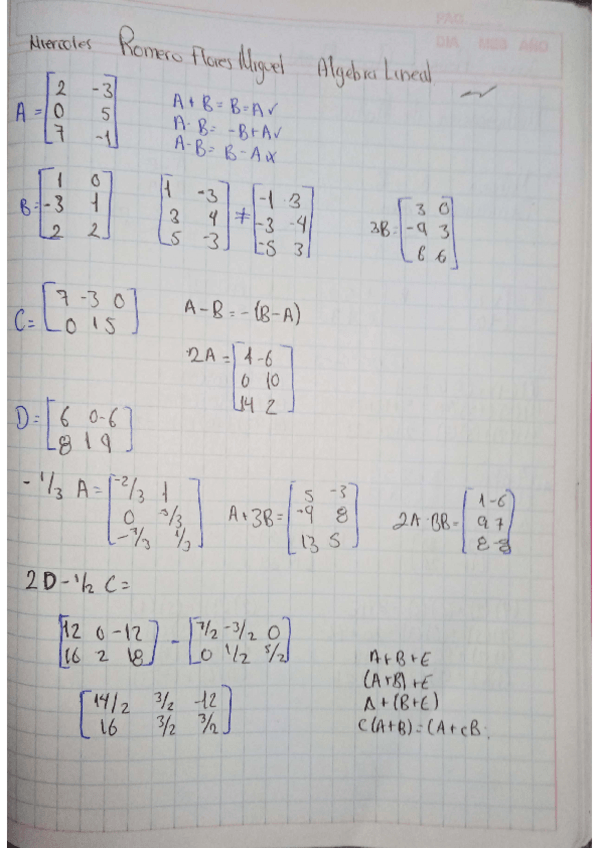 PAG.
DIA MES AÑO
Miercoles Romero Flores Miguel Algebra Lineal
A = [2 -3
0 5
7 -1]
A + B = B = A ✓
A - B = -B + A ✓
A - B = B - A x
B = [1 0
-3 1
2 2]
[1 -3
3 4
5 -3] ≠ [-1 3
-3 -4
-5 3]
3B = [3 0
-9 3
8 6]
C = [7 -3 0
0 1 5]
A - B = - (B - A)
2A = [4 -6
0 10
14 2]
D = [6 0 -6
8 1 9]
- 1/3 A = [-2/3 1
0 -5/3
-7/3 1/3]
A + 3B = [5 -3
-9 8
13 5]
2A - 3B = [1 -6
9 7
8 -8]
2D - 1/2 C =
[12 0 -12
16 2 18] - [7/2 -3/2 0
0 1/2 5/2]
[14/2 3/2 -12
16 3/2 3/2]
A + B + E
(A + B) + E
A + (B + E)
C(A + B) = CA + CB